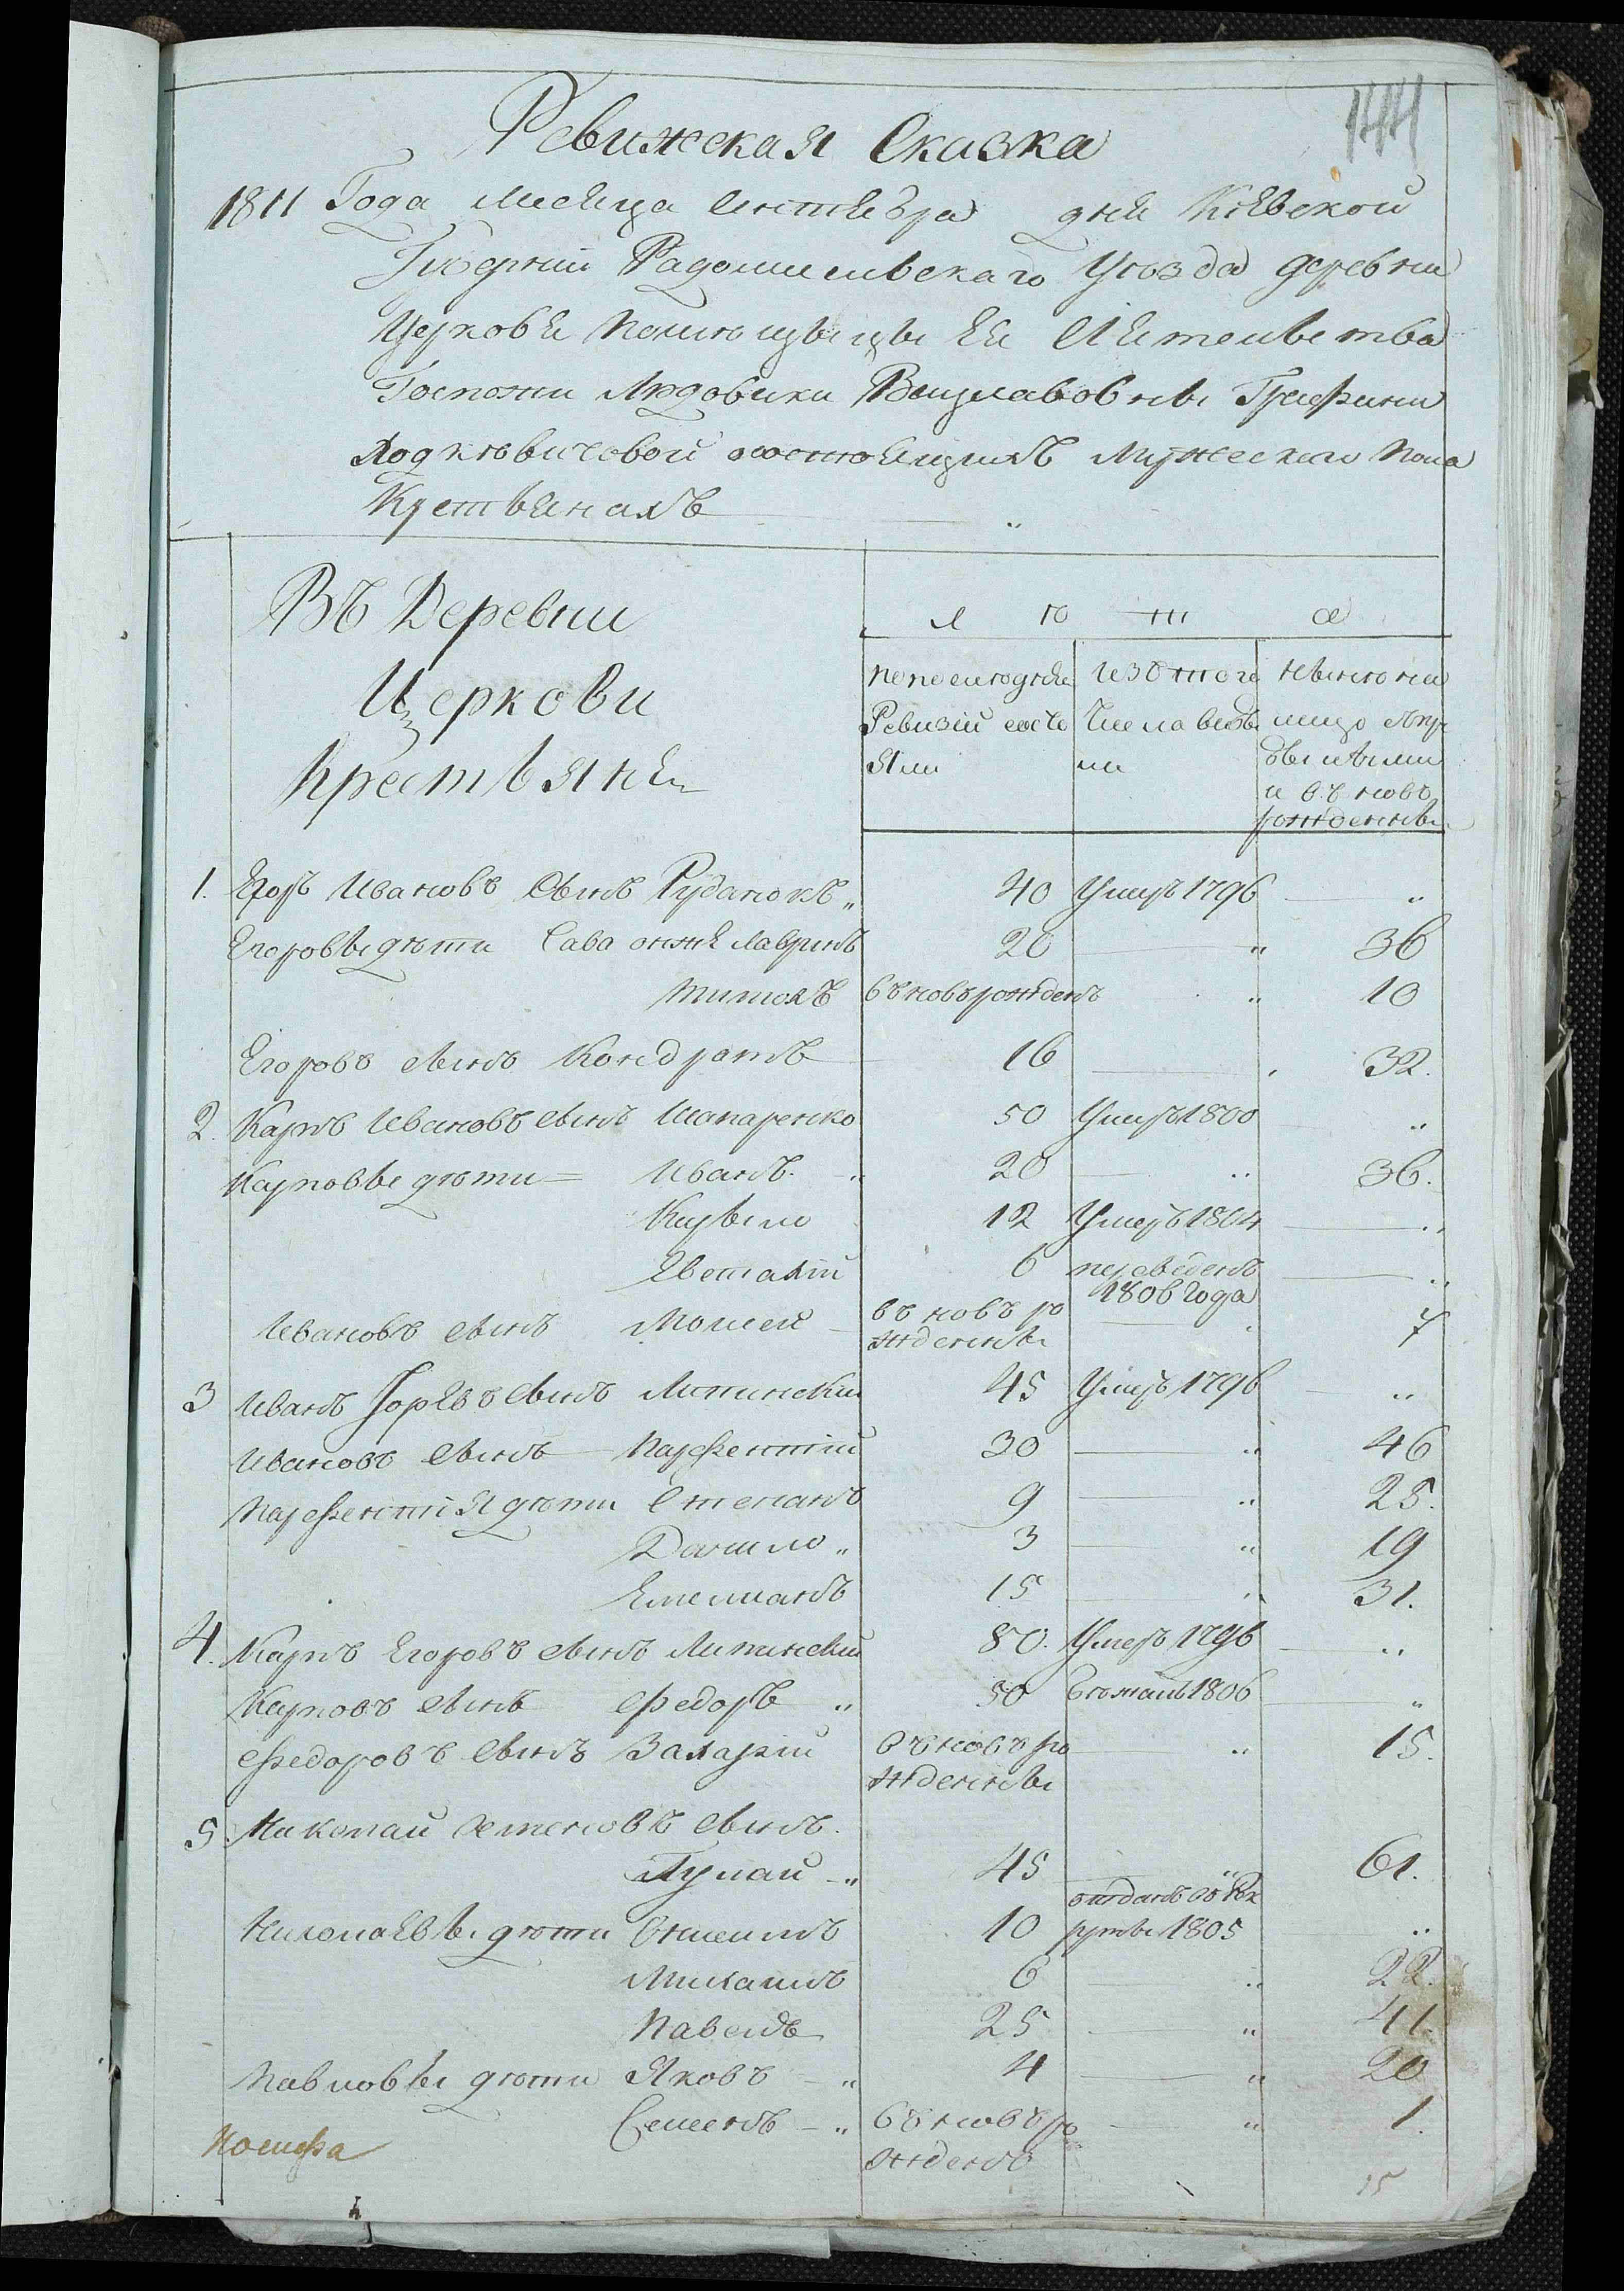 144
Ревижская Сказка
1811 Года месяца Сентября дня Кіевской
Губерніи Радомисльскаго Уѣзда деревни
Церковя ея Сіятельства
Госпожи Людовики Вацлавовны Графини
Ходкѣвичовой состоящимъ Мужескаго пола
Крестьянамъ
Въ Деревни
Церкови
Крестьяня
лѣта
по последняй Ревизіи состо яли
изътого числа выбы ли
нынѣ на лицо съ при былыми и въновъ рожденны
1. Егоръ Ивановъ Сынъ Рудаиокъ 40 Умеръ 1796 "
Егоровы дѣти Сава онже Лавринъ 20 " 36
Тимохъ въновърожденъ " 10
Егоровъ сынъ Кондратъ 16 " 32.
2. Карпъ Ивановъ сынъ Шапаренко 50 Умеръ 1800 "
Карповы дѣти = Иванъ " 20 " 36.
Курыло 12 Умеръ 1804 "
Евстахій 6 переведенъ 1806 Года "
Ивановъ сынъ Мошей въновъ ро жденны " 7
3 Иванъ сынъ Липинскій 45 Умеръ 1796 "
Ивановъ сынъ Парфентій 30 " 46
Парфентія дѣти Степанъ 9 " 25.
Данило " 3 " 19
Емелианъ 15 " 31.
4. Карпъ Егоровъ сынъ Липинскій 80. Умеръ 1796 "
Карповъ сынъ Федоръ " 50 бѣжалъ 1806 "
Федоровъ сынъ Захарій въновъ ро жденны " 15.
5. Николай сынъ
Гулай " 45 " 61.
Николаевы дѣти 10 отданъ въ Рекруты 1805 "
Михаилъ 6 " 22.
Павелъ 25 " 41.
Павловы дѣти Яковъ " 4 " 20
Семенъ " въновъ ро жденъ " 1.
15